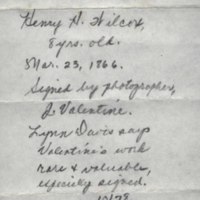 Henry A. Wilcox,
8 yrs. old.
Mar. 23, 1866.
Signed by photographer,
J. Valentine.
Lynn Davis says
Valentine's work
rare & valuable,
especially signed.
10/78